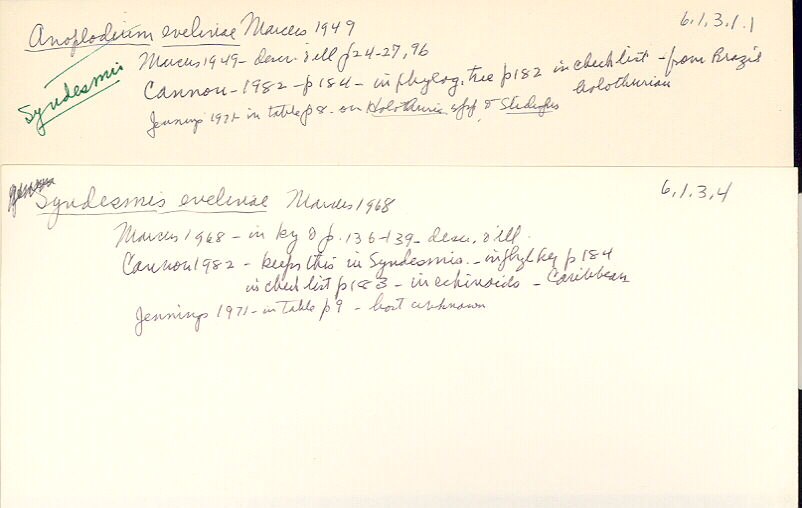 6.1.3.1.1
Anoplodium evelinae Marcus 1949
Syndesmis
Marcus 1949 - descr. & ill p24-27, 96
Cannon - 1982 - p184 - in phylog. tree p182 in checklist - from Brazil
holothurian
Jennings 1971 in table p8 - on Holothuria spp & Stichopus
6.1.3.4
Syndesmis evelinae Marcus 1968
Marcus 1968 - in key & p. 136-139 - descr. & ill.
Cannon 1982 - keeps this in Syndesmis. - in phyl key p184
in check list p183 - in echinoids - Caribbean
Jennings 1971 - in table p9 - host unknown